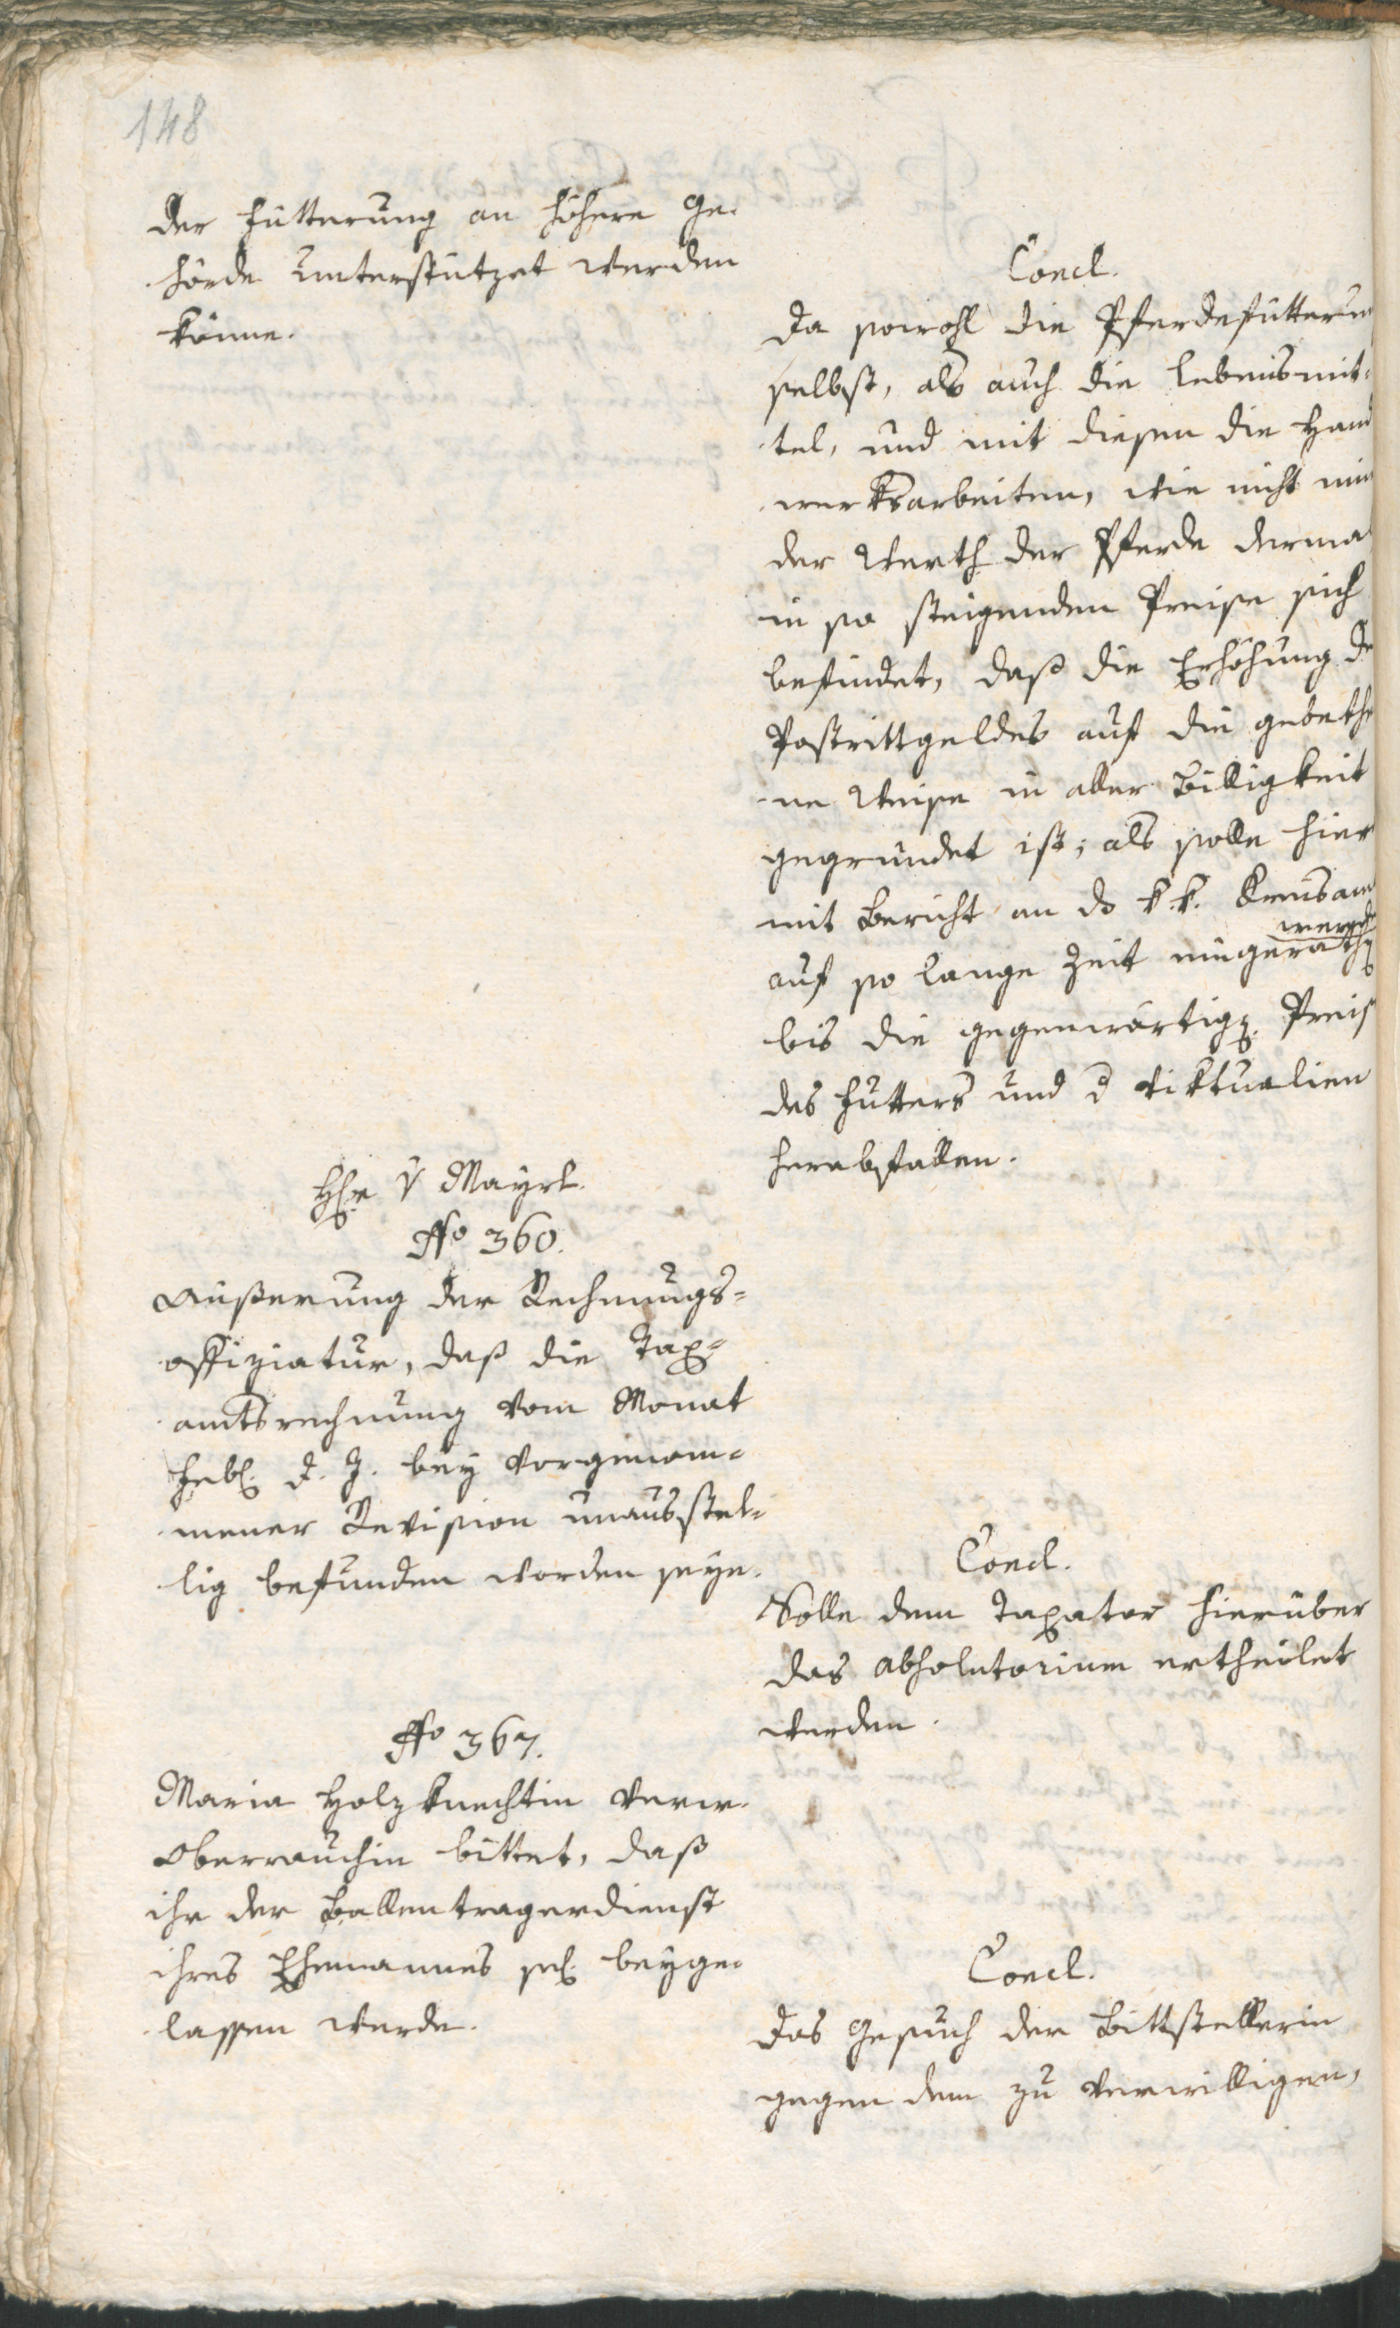 148
der Fütterung an höhere Ge-
hörde Unterstützet werden
könne.
Concl.
Da sowohl die Pferdefütterun
selbst, als auch die Lebensmit-
tel, und mit diesen die Hand
werksarbeiten, wie nicht min
der Werth der Pferde dermal
in so steigenden Preise sich
befindet, daß die Erhöhung de
Postrittgeldes auf die gebethe
ne Weise in aller Billigkeit
gegründet ist; als solle hier
mit Bericht an das k.k. Kreisam
auf so lange Zeit eingerathen
bis die gegenwärtigen Preis
des Futters und d Viktualien
herabfallen.
Hr v Mayrl.
No 360.
Äußerung der Rechnungs-
offiziatur, daß die Tax-
amtsrechnung vom Monat
Febr. d. J. bey vorgenom-
mener Revision unausstel-
lig befunden worden seye.
Concl.
Solle dem Taxator hierüber
das absolutorium ertheilet
werden.
No 367.
Maria Holzknechtin verw.
Oberrauchin bittet, daß
ihr der Ballentragerdienst
ihres Ehemannes sel. beyge-
lassen werde.
Concl.
Das Gesuch der Bittstellerin
gegen dem zu verwilligen,